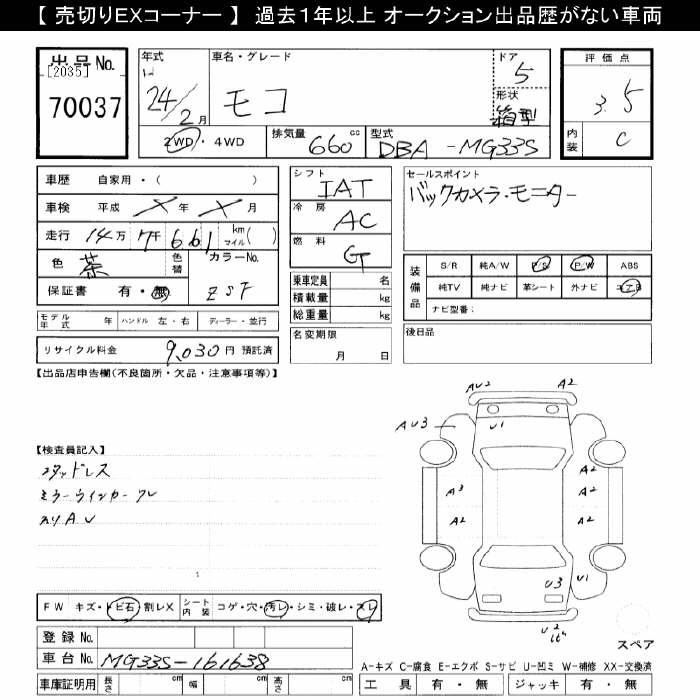 【 売切りEXコーナー 】 過去1年以上 オークション出品歴がない車両
出品No.
[2035]
70037
年式
24/2月
車名・グレード
モコ
ドア
5
形状
箱型
評価点
3.5
内装
C
2WD・4WD
排気量 660 cc
型式 DBA-MG33S
車歴 自家用・( )
車検 平成 × 年 × 月
走行 14万 7千 661 km マイル( )
色 茶 色替 カラーNo. ZSF
保証書 有・無
モデル年式 年 ハンドル 左・右 ディーラー・並行
リサイクル料金 9,030円 預託済
シフト
IAT
冷房
AC
燃料
G
乗車定員 名
積載量 kg
総重量 kg
名変期限
月 日
セールスポイント
バックカメラ・モニター
装備品
S/R 純A/W P/S P/W ABS
純TV 純ナビ 革シート 外ナビ エアB
ナビ型番:
後日品
【出品店申告欄(不良箇所・欠品・注意事項等)】
【検査員記入】
スタッドレス
ミラーウインカーワレ
スリAU
FW キズ・トビ石・割レX シート内装 コゲ・穴・汚レ・シミ・破レ・スレ
登録No.
車台No. MG33S-161638
車庫証明用 長さ cm 幅 cm 高さ cm
AU2
A2
AU3
U1
A2
A3
A2
A2
A2
U3
U1
U2
スペア
A-キズ C-腐食 E-エクボ S-サビ U-凹ミ W-補修 XX-交換済
工具 有・無 ジャッキ 有・無